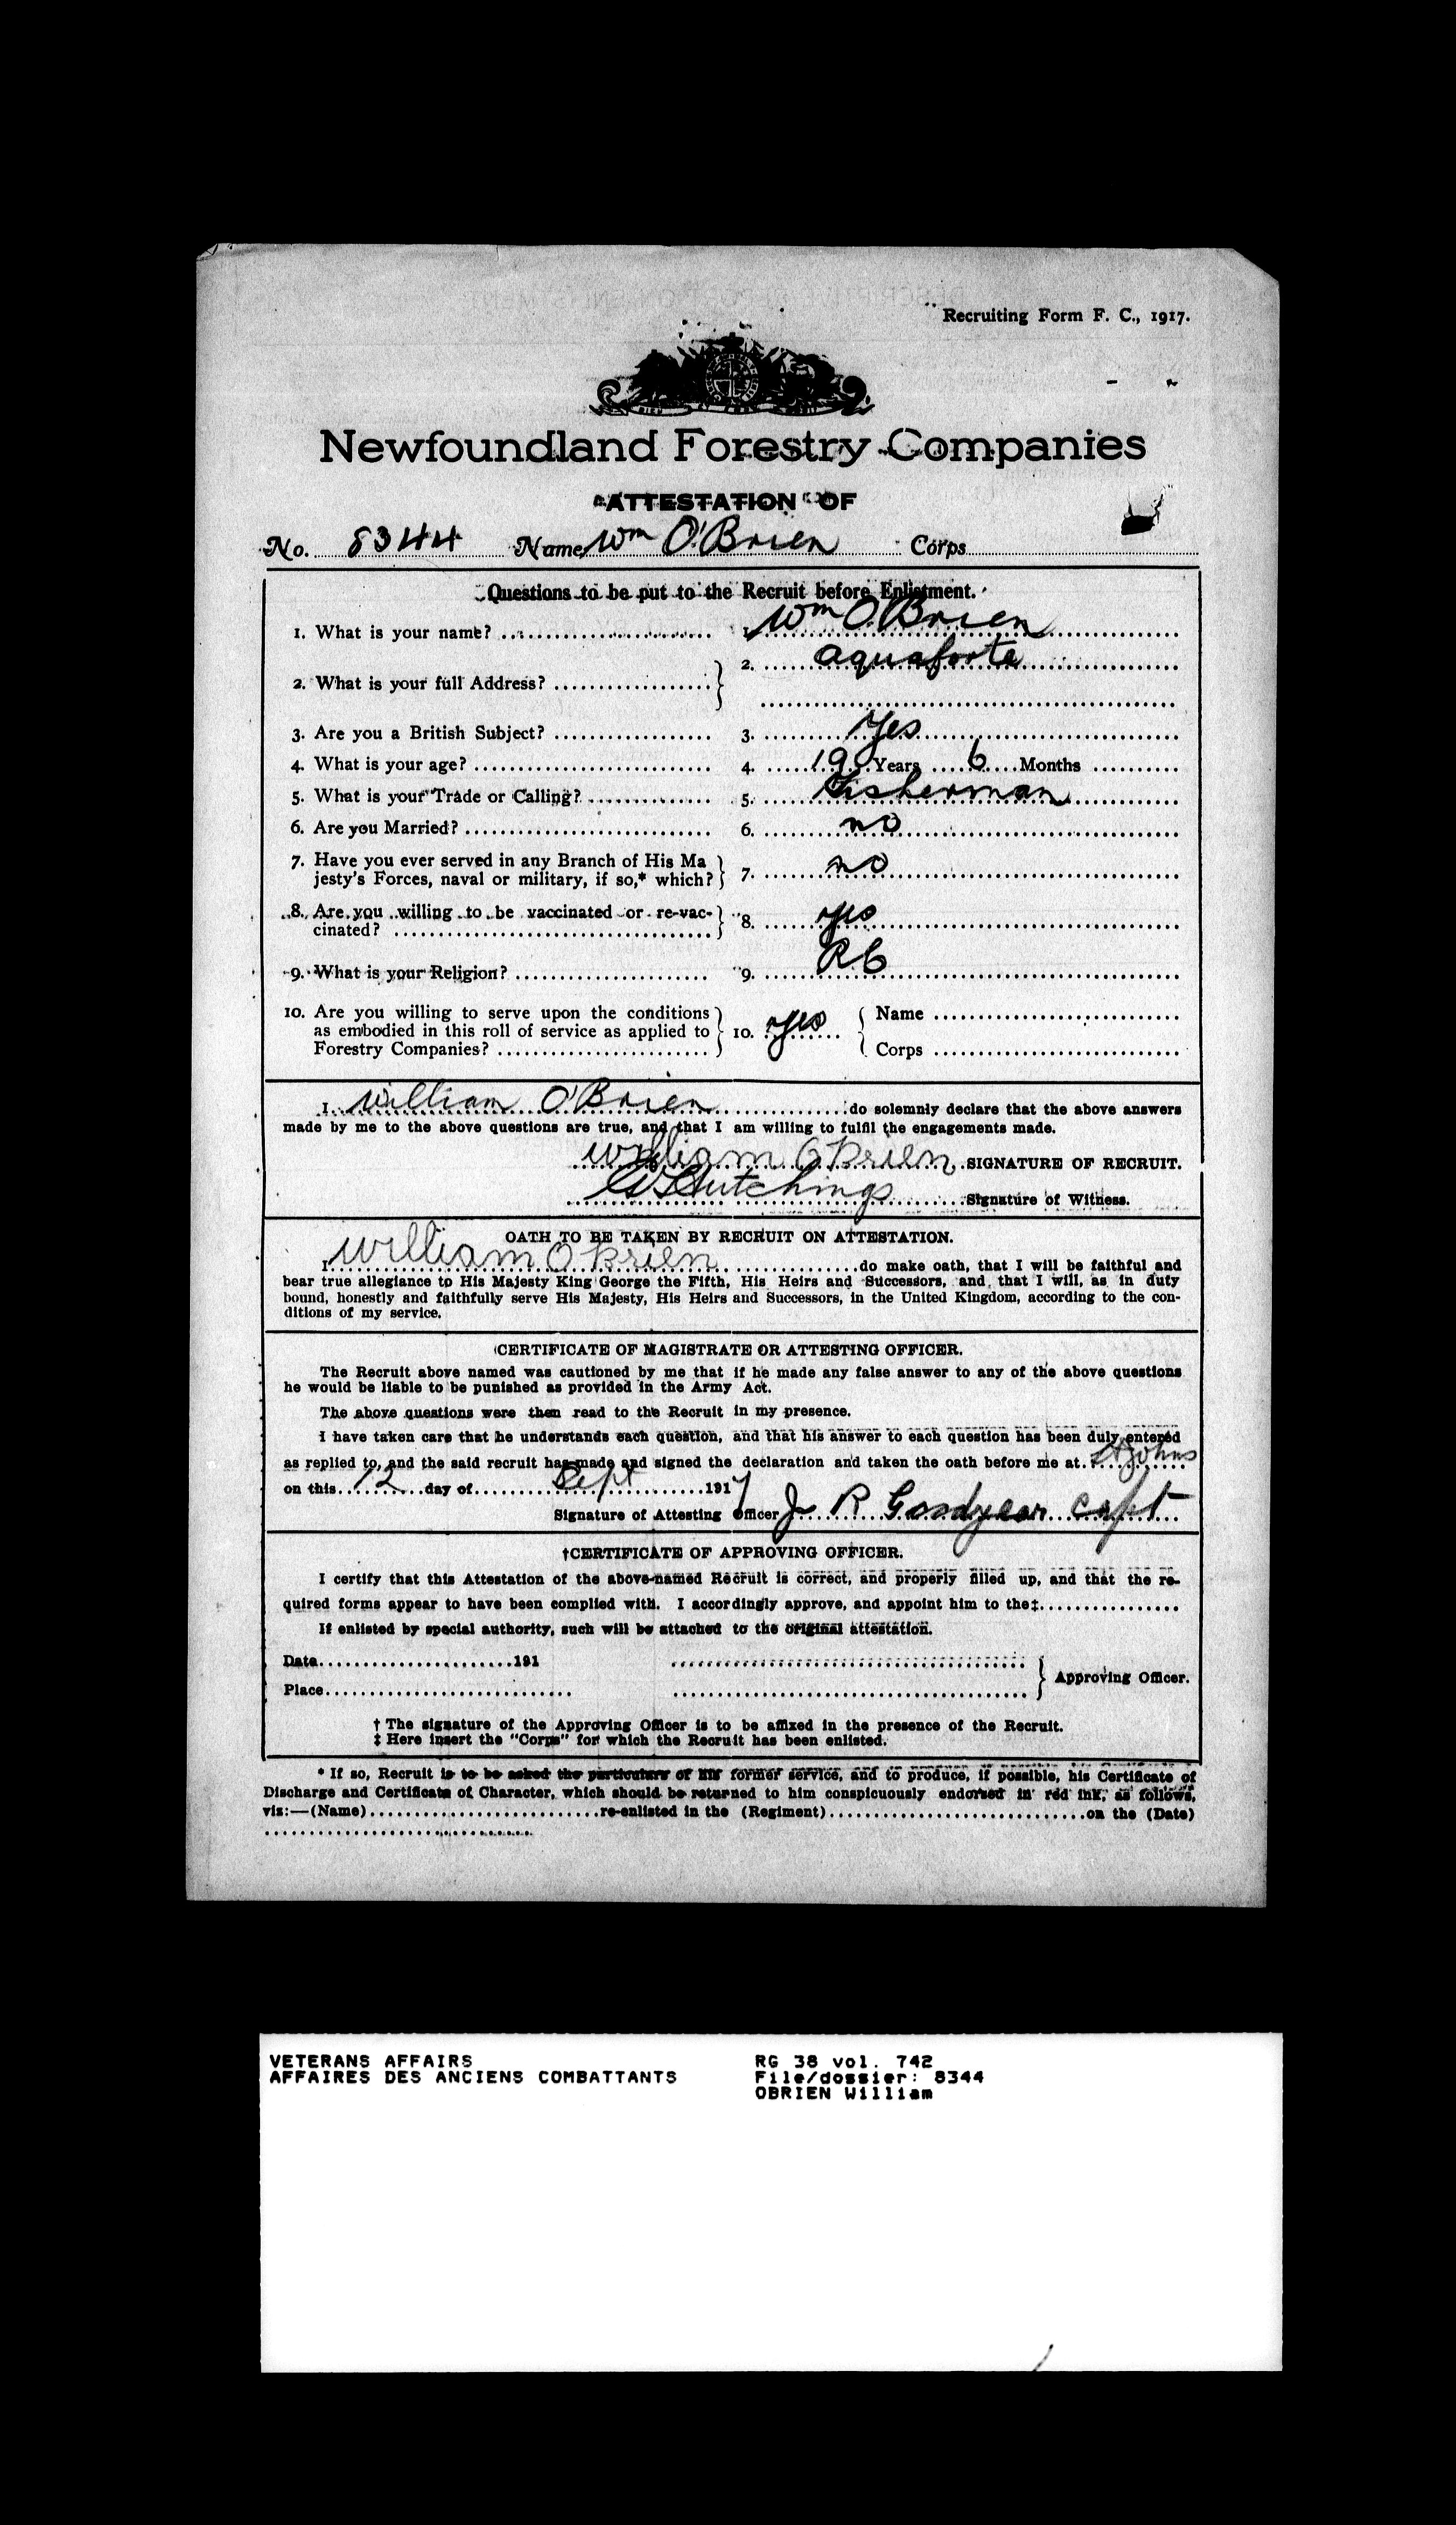 Recruiting Form F. C., 1917.
Newfoundland Forestry Companies
ATTESTATION OF
No. 8344 Name Wm O'Brien Corps
Questions to be put to the Recruit before Enlistment.
1. What is your name? 1. Wm O'Brien
2. What is your full Address? 2. Aquaforte
3. Are you a British Subject? 3. Yes
4. What is your age? 4. 19 Years 6 Months
5. What is your Trade or Calling? 5. Fisherman
6. Are you Married? 6. no
7. Have you ever served in any Branch of His Ma
jesty's Forces, naval or military, if so,* which? 7. no
8. Are you willing to be vaccinated or re-vac-
cinated? 8. yes
9. What is your Religion? 9. RC
10. Are you willing to serve upon the conditions
as embodied in this roll of service as applied to
Forestry Companies? 10. yes { Name
Corps
I William O'Brien do solemnly declare that the above answers
made by me to the above questions are true, and that I am willing to fulfil the engagements made.
William O Brien SIGNATURE OF RECRUIT.
Hutchings Signature of Witness.
OATH TO BE TAKEN BY RECRUIT ON ATTESTATION.
I William O Brien do make oath, that I will be faithful and
bear true allegiance to His Majesty King George the Fifth, His Heirs and Successors, and that I will, as in duty
bound, honestly and faithfully serve His Majesty, His Heirs and Successors, in the United Kingdom, according to the con-
ditions of my service.
CERTIFICATE OF MAGISTRATE OR ATTESTING OFFICER.
The Recruit above named was cautioned by me that if he made any false answer to any of the above questions
he would be liable to be punished as provided in the Army Act.
The above questions were then read to the Recruit in my presence.
I have taken care that he understands each question, and that his answer to each question has been duly entered
as replied to, and the said recruit has made and signed the declaration and taken the oath before me at St Johns
on this 12 day of Sept 1917
Signature of Attesting Officer J R Goodyear Capt
†CERTIFICATE OF APPROVING OFFICER.
I certify that this Attestation of the above-named Recruit is correct, and properly filled up, and that the re-
quired forms appear to have been complied with. I accordingly approve, and appoint him to the‡
If enlisted by special authority, such will be attached to the original attestation.
Date 191
Place
Approving Officer.
† The signature of the Approving Officer is to be affixed in the presence of the Recruit.
‡ Here insert the "Corps" for which the Recruit has been enlisted.
* If so, Recruit is to be asked the particulars of his former service, and to produce, if possible, his Certificate of
Discharge and Certificate of Character, which should be returned to him conspicuously endorsed in red ink, as follows,
viz:—(Name) re-enlisted in the (Regiment) on the (Date)
VETERANS AFFAIRS RG 38 vol. 742
AFFAIRES DES ANCIENS COMBATTANTS File/dossier: 8344
OBRIEN William